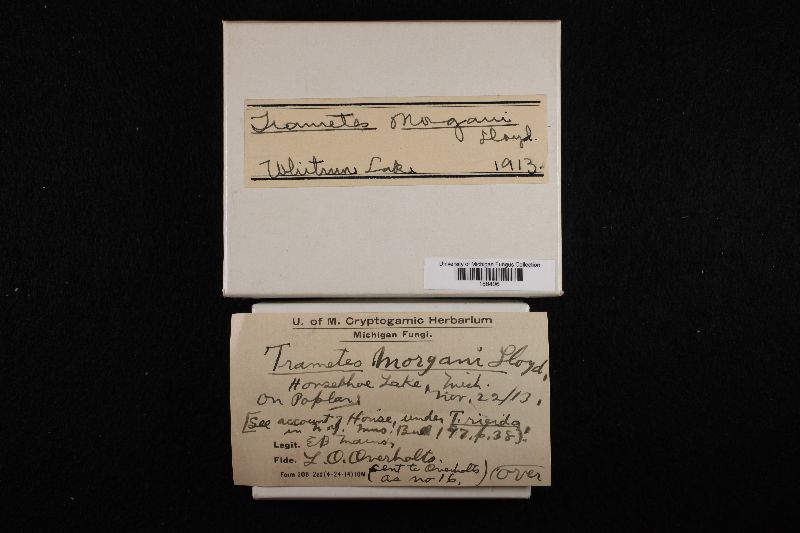 Trametes Morgani
Lloyd.
Whitmore Lake 1913.
University of Michigan Fungus Collection
U. of M. Cryptogamic Herbarium
Michigan Fungi.
Trametes Morgani Lloyd.
Horseshoe Lake, Mich.
On Poplar, Nov. 22/13.
[See account of House, under T. rigida
in N.Y. Mus. Bul 197. p. 38).
Legit. EB Mains,
Fide. L. O. Overholts.
Form 20B 2ed (4-24-14) 10M (Sent to Overholts
as no 16.) (over